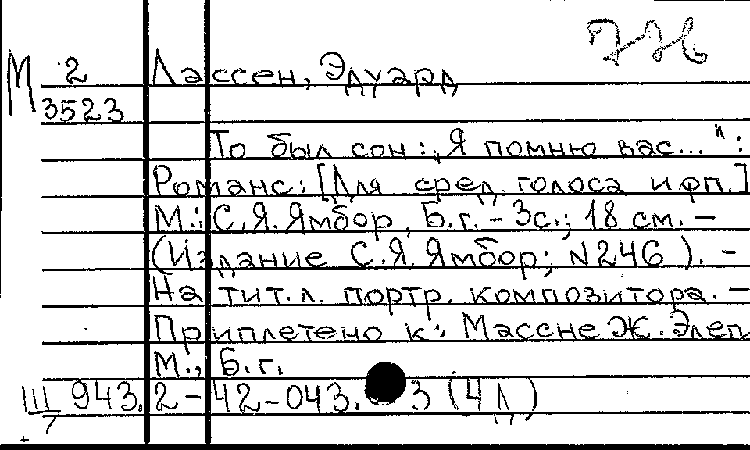 М 2
3523
Лассен, Эдуард
То был сон: „Я помню вас...":
Романс: [Для сред. голоса и фп.]
М.: С.Я. Ямбор, Б.г. - 3с.; 18 см. -
(Издание С.Я. Ямбор; N246). -
На тит.л. портр. композитора. -
Приплетено к: Массне Ж. Элег.
М., Б.г.
III/7 943.2-42-043. 3 (4Л)